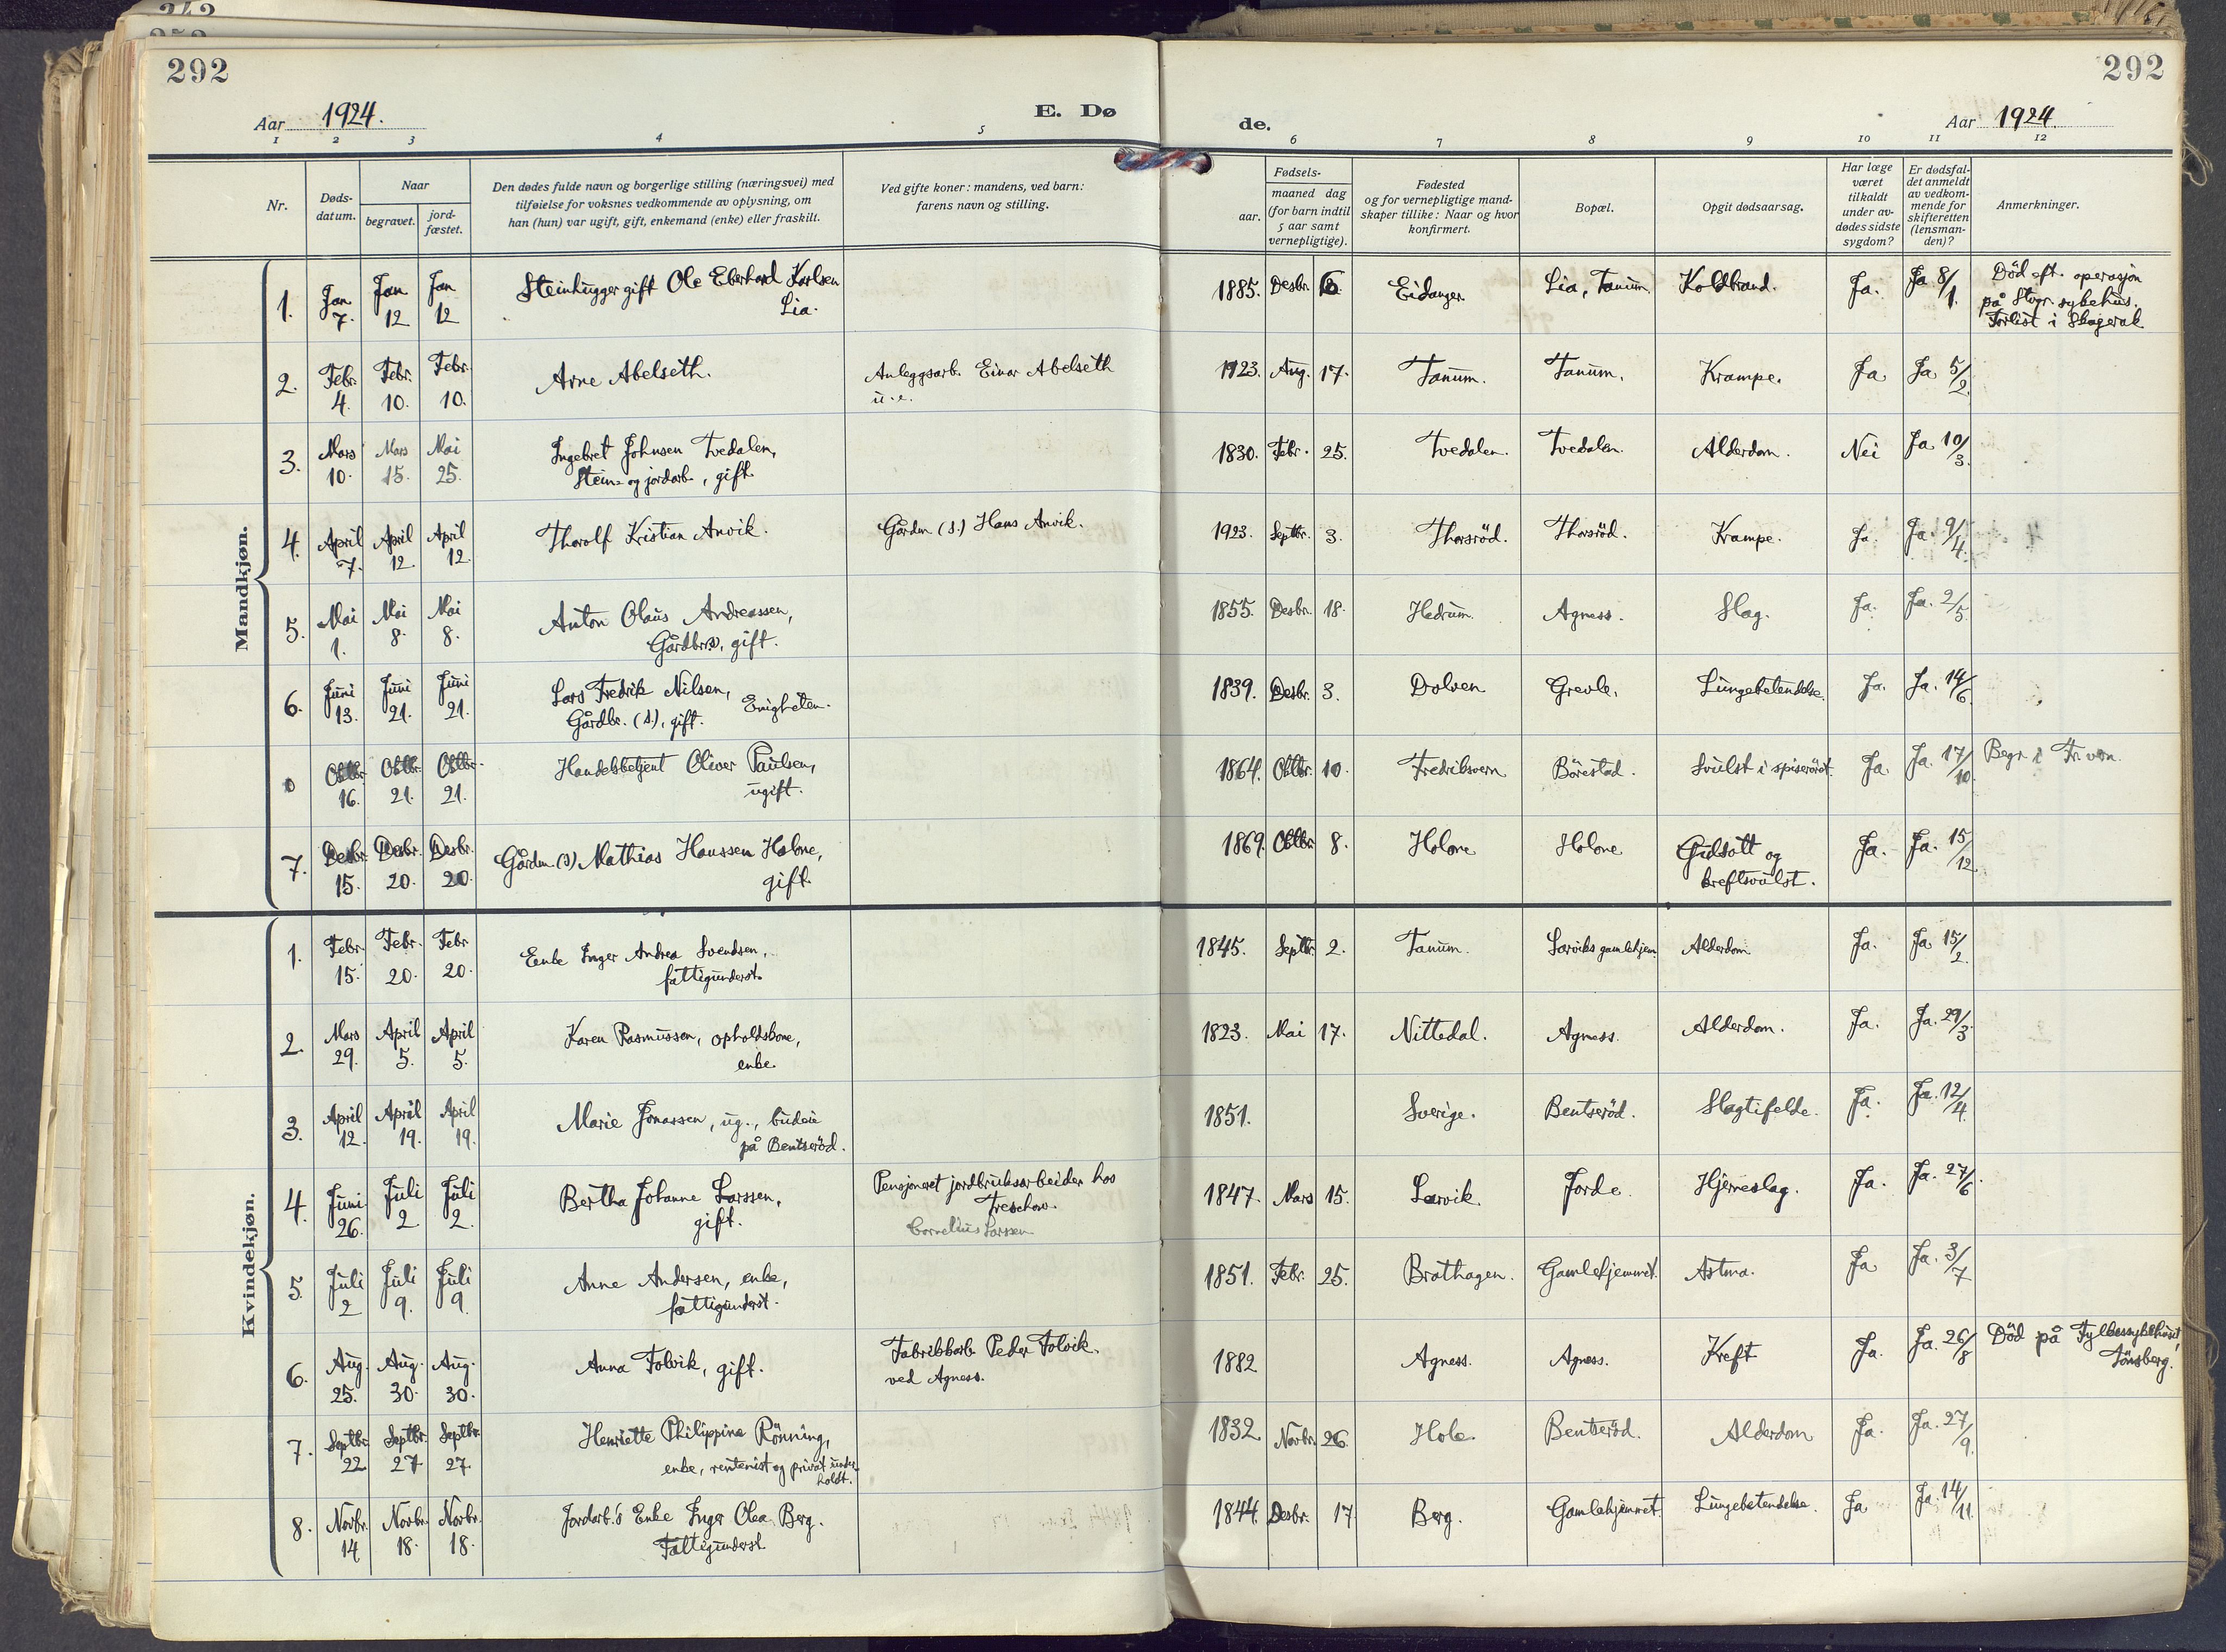 292
292
Aar 1924.
E. Dø
de.
Aar 1924.
1 2 3 4 5 6 7 8 9 10 11 12
Nr.
Døds-
datum.
Naar
begravet.
jord-
fæstet.
Den dødes fulde navn og borgerlige stilling (næringsvei) med
tilføielse for voksnes vedkommende av oplysning, om
han (hun) var ugift, gift, enkemand (enke) eller fraskilt.
Ved gifte koner: mandens, ved barn:
farens navn og stilling.
Fødsels-
aar.
maaned dag
(for barn indtil
5 aar samt
vernepligtige).
Fødested
og for vernepligtige mand-
skaper tillike: Naar og hvor
konfirmert.
Bopæl.
Opgit dødsaarsag.
Har læge
været
tilkaldt
under av-
dødes sidste
sygdom?
Er dødsfal-
det anmeldt
av vedkom-
mende for
skifteretten
(lensman-
den)?
Anmerkninger.
Mandkjøn.
1. Jan 7. Jan 12 Jan 12 Steinhugger gift Ole Eberhard Karlsen
Lia.
1885. Desbr. 6. Eidanger Lia, Tanum. Koldbrand. Ja. Ja 8/1.
Död eft. operasjon
på Stvgr. sykehus.
Forlist i Skagerak
2. Febr. 4. Febr. 10. Febr. 10. Arne Abelseth. Anleggsarb. Einar Abelseth
u. e.
1923. Aug. 17. Tanum. Tanum. Krampe. Ja Ja 5/2.
3. Mars 10. Mars 15. Mai 25. Ingebret Johnsen Tvedalen,
Stein- og jordarb., gift.
1830. Febr. 25. Tvedalen. Tvedalen. Alderdom. Nei Ja 10/3.
4. April 7. April 12. April 12. Thorolf Kristian Anvik. Gårdm (s.) Hans Anvik.
1923. Septbr. 3. Thorsröd. Thorsröd. Krampe. Ja. Ja. 9/4.
5. Mai 1. Mai 8. Mai 8. Anton Olaus Andreassen,
Gårdbr., gift.
1855. Desbr. 18. Hedrum. Agness. Slag. Ja. Ja. 2/5.
6. Juni 13. Juni 21. Juni 21. Lars Fredrik Nilsen,
Gårdbr. (s.), gift. Enigheten.
1839. Desbr. 3. Dolven Grevle. Lungebetendelse. Ja. Ja. 14/6.
0 Oktbr. 16. Oktbr. 21. Oktbr. 21. Handelsbetjent Oliver Paulsen,
ugift.
1864. Oktbr. 10. Fredriksvern Börestad. Svulst i spiseröret. Ja Ja. 17/10. Begr. i Fr. vern.
7. Desbr. 15. Desbr. 20. Desbr. 20. Gårdm (s) Mathias Hanssen Holme,
gift.
1869. Oktbr. 8. Holme Holme Gulsott og
kreftsvulst. Ja. Ja. 15/12
Kvindekjøn.
1. Febr. 15. Febr. 20. Febr. 20. Enke Inger Andrea Svendsen,
fattigunderst.
1845. Septbr. 2. Tanum. Larviks gamlehjem. Alderdom Ja. Ja 15/2.
2. Mars 29. April 5. April 5. Karen Rasmussen, opholdskone,
enke.
1823. Mai 17. Nittedal. Agness. Alderdom. Ja. Ja. 29/3.
3. April 12. April 19. April 19. Marie Jonassen, ug., budeie
på Bentseröd.
1851. Sverige. Bentseröd. Slagtifelde. Ja. Ja. 12/4.
4. Juni 26. Juli 2 Juli 2. Bertha Johanne Larssen,
gift. Pensjoneret jordbruksarbeider hos
Treschow.
Cornelius Larssen
1847. Mars 15. Larvik. Jorde. Hjerneslag. Ja. Ja. 27/6.
5. Juli 2 Juli 9. Juli 9. Anne Andersen, enke,
fattigunderst.
1851. Febr. 25. Brathagen. Gamlehjemmet. Astma. Ja Ja. 3/7
6. Aug. 25. Aug. 30. Aug. 30. Anna Tolvik, gift. Fabrikkarb. Peder Tolvik.
ved Agness.
1882 Agness. Agness. Kreft Ja. Ja. 26/8 Död på Fylkessykehuset,
Tönsberg.
7. Septbr. 22 Septbr. 27 Septbr. 27. Henriette Philippine Rönning,
enke, rentenist og privat under-
holdt.
1832. Novbr. 26. Hole Bentseröd. Alderdom Ja. Ja. 27/9.
8. Novbr. 14 Novbr. 18. Novbr. 18. Jordarb.'s Enke Inger Olea Berg.
Fattigunderst.
1844. Desbr. 17 Berg. Gamlehjemmet. Lungebetendelse. Ja Ja 14/11.